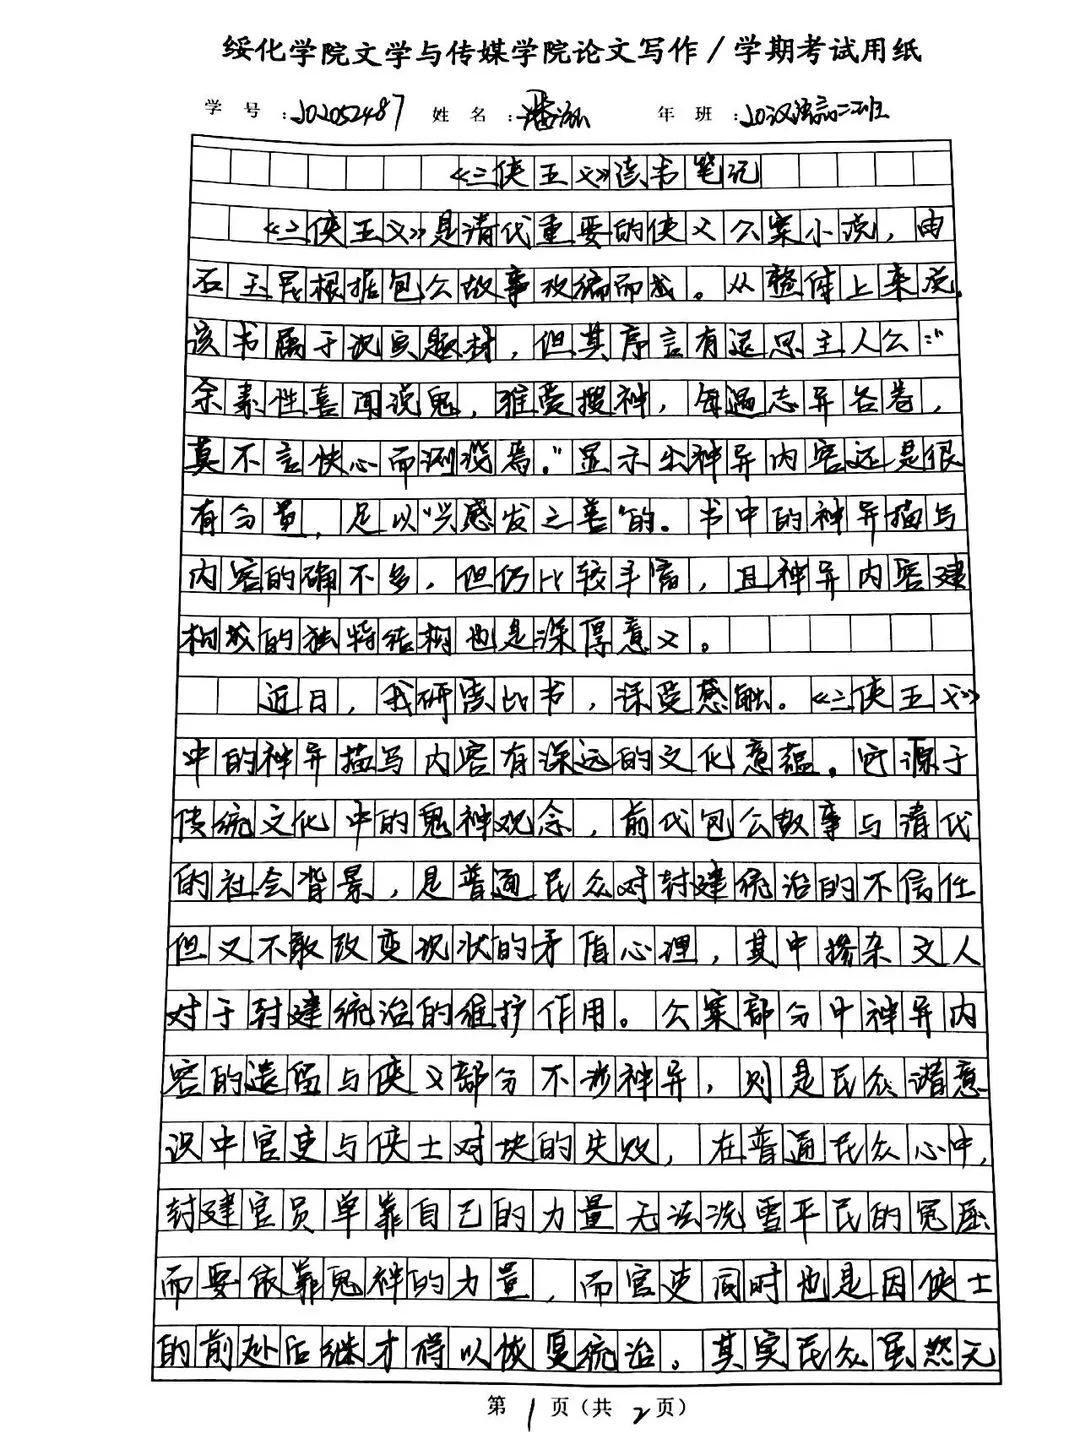 绥化学院文学与传媒学院论文写作/学期考试用纸
学号:202052487 姓名:潘泓 年班:20汉语言二班
《三侠五义》读书笔记
《三侠五义》是清代重要的侠义公案小说,由
石玉昆根据包公故事改编而成。从整体上来说,
该书属于现实题材,但其序言有退思主人公:“
余素性喜闻说鬼,雅爱搜神,每遇志异各卷,
莫不言快心而浏览焉。”显示出神异内容还是很
有分量,足以“兴感发之善”的。书中的神异描写
内容的确不多,但仍比较丰富,且神异内容建
构成的独特结构也是深厚意义。
近日,我研读此书,深受感触。《三侠五义》
中的神异描写内容有深远的文化意蕴。它源于
传统文化中的鬼神观念,前代包公故事与清代
的社会背景,是普通民众对封建统治的不信任
但又不敢改变现状的矛盾心理,其中掺杂文人
对于封建统治的维护作用。公案部分中神异内
容的遗留与侠义部分不涉神异,则是民众潜意
识中官吏与侠士对抉的失败,在普通民众心中,
封建官员单靠自己的力量无法洗雪平民的冤屈
而要依靠鬼神的力量,而官吏同时也是因侠士
的前赴后继才得以恢复统治。其实民众虽然无
第1页(共2页)